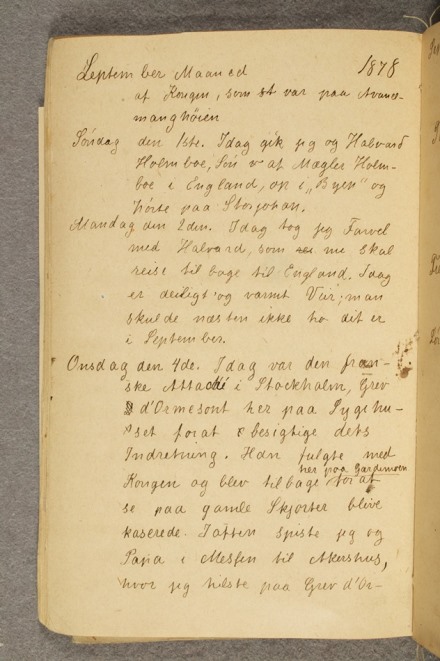 September Maaned 1878
af Kongen, som var paa Avance-
manghöien
Söndag den 1ste. Idag gik jeg og Halvard
Holmboe, Sön af Mægler Holm-
boe i England, op i „Byen" og
hörte paa Storjohan.
Mandag den 2den. Idag tog jeg Farvel
med Halvard, som nu skal
reise tilbage til England. Idag
er deiligt og varmt Veir; man
skulde næsten ikke tro dit er
i September.
Onsdag den 4de. Idag var den fran-
ske Attaché i Stockholm, Grev
d'Ormesont her paa Sygehu-
set forat besigtige dets
Indretning. Han fulgte med
her paa Gardemoen
Kongen og blev tilbage forat
se paa gamle Skjorter blive
kaserede. Iaften spiste jeg og
Papa i Messen til Akershus,
hvor jeg hilste paa Grev d'Or-